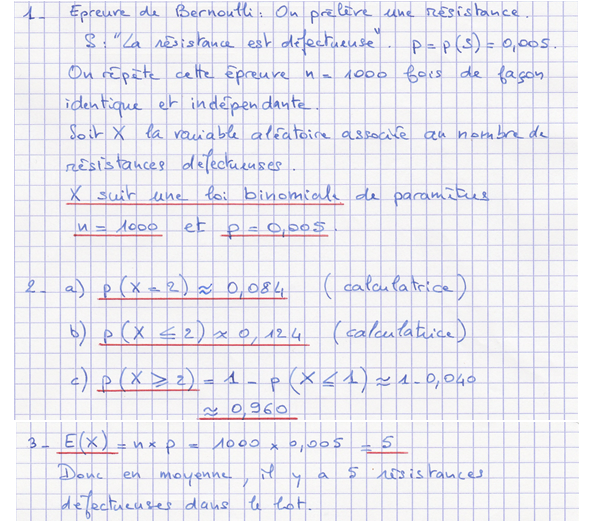 1- Epreuve de Bernoulli : On prélève une résistance.
S : "La résistance est défectueuse". p = p(S) = 0,005.
On répète cette épreuve n = 1000 fois de façon
identique et indépendante.
Soit X la variable aléatoire associée au nombre de
résistances défectueuses.
X suit une loi binomiale de paramètres
n = 1000 et p = 0,005.
2- a) p(X = 2) ≈ 0,084 (calculatrice)
b) p(X ≤ 2) ≈ 0,124 (calculatrice)
c) p(X ≥ 2) = 1 - p(X ≤ 1) ≈ 1 - 0,040
≈ 0,960
3- E(X) = n × p = 1000 × 0,005 = 5
Donc en moyenne, il y a 5 résistances
défectueuses dans le lot.